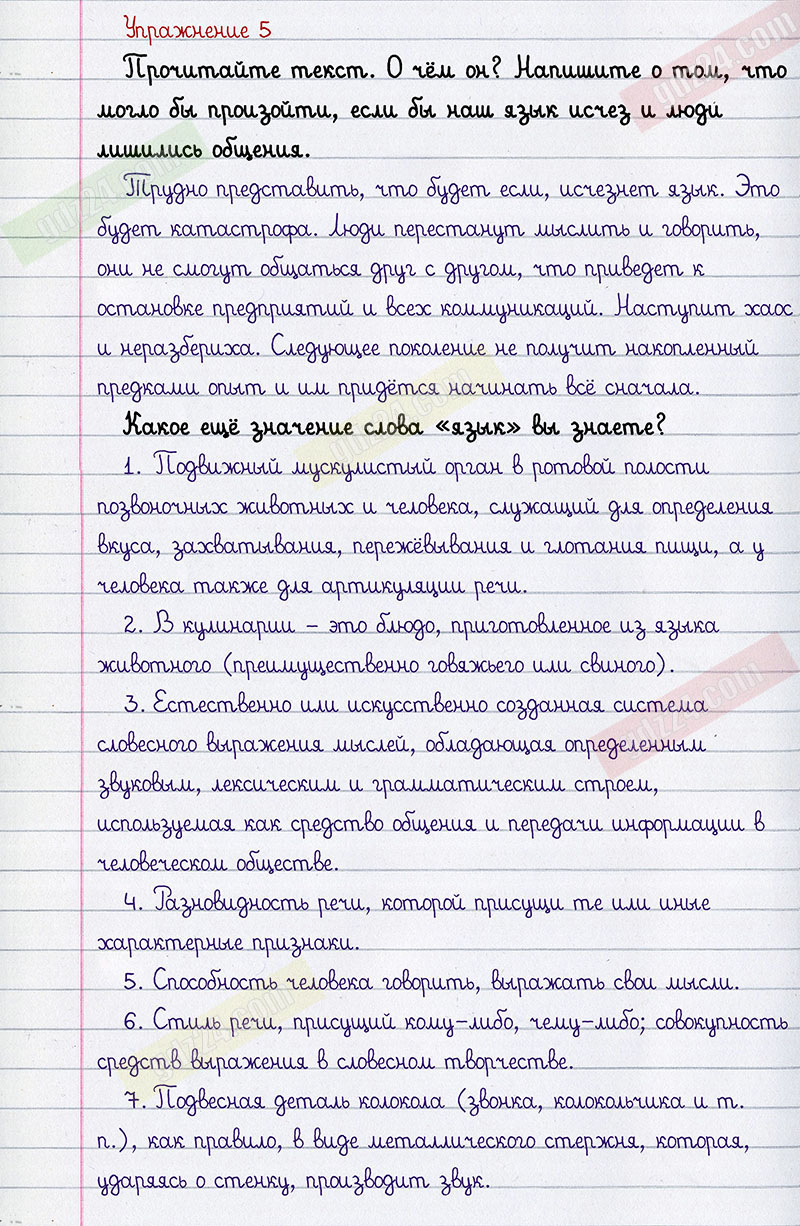 Упражнение 5
Прочитайте текст. О чём он? Напишите о том, что
могло бы произойти, если бы наш язык исчез и люди
лишились общения.
Трудно представить, что будет если, исчезнет язык. Это
будет катастрофа. Люди перестанут мыслить и говорить,
они не смогут общаться друг с другом, что приведет к
остановке предприятий и всех коммуникаций. Наступит хаос
и неразбериха. Следующее поколение не получит накопленный
предками опыт и им придётся начинать всё сначала.
Какое ещё значение слова «язык» вы знаете?
1. Подвижный мускулистый орган в ротовой полости
позвоночных животных и человека, служащий для определения
вкуса, захватывания, пережёвывания и глотания пищи, а у
человека также для артикуляции речи.
2. В кулинарии – это блюдо, приготовленное из языка
животного (преимущественно говяжьего или свиного).
3. Естественно или искусственно созданная система
словесного выражения мыслей, обладающая определенным
звуковым, лексическим и грамматическим строем,
используемая как средство общения и передачи информации в
человеческом обществе.
4. Разновидность речи, которой присущи те или иные
характерные признаки.
5. Способность человека говорить, выражать свои мысли.
6. Стиль речи, присущий кому-либо, чему-либо; совокупность
средств выражения в словесном творчестве.
7. Подвесная деталь колокола (звонка, колокольчика и т.
п.), как правило, в виде металлического стержня, которая,
ударяясь о стенку, производит звук.
gdz24.com
gdz24.com
gdz24.com
gdz24.com
gdz24.com